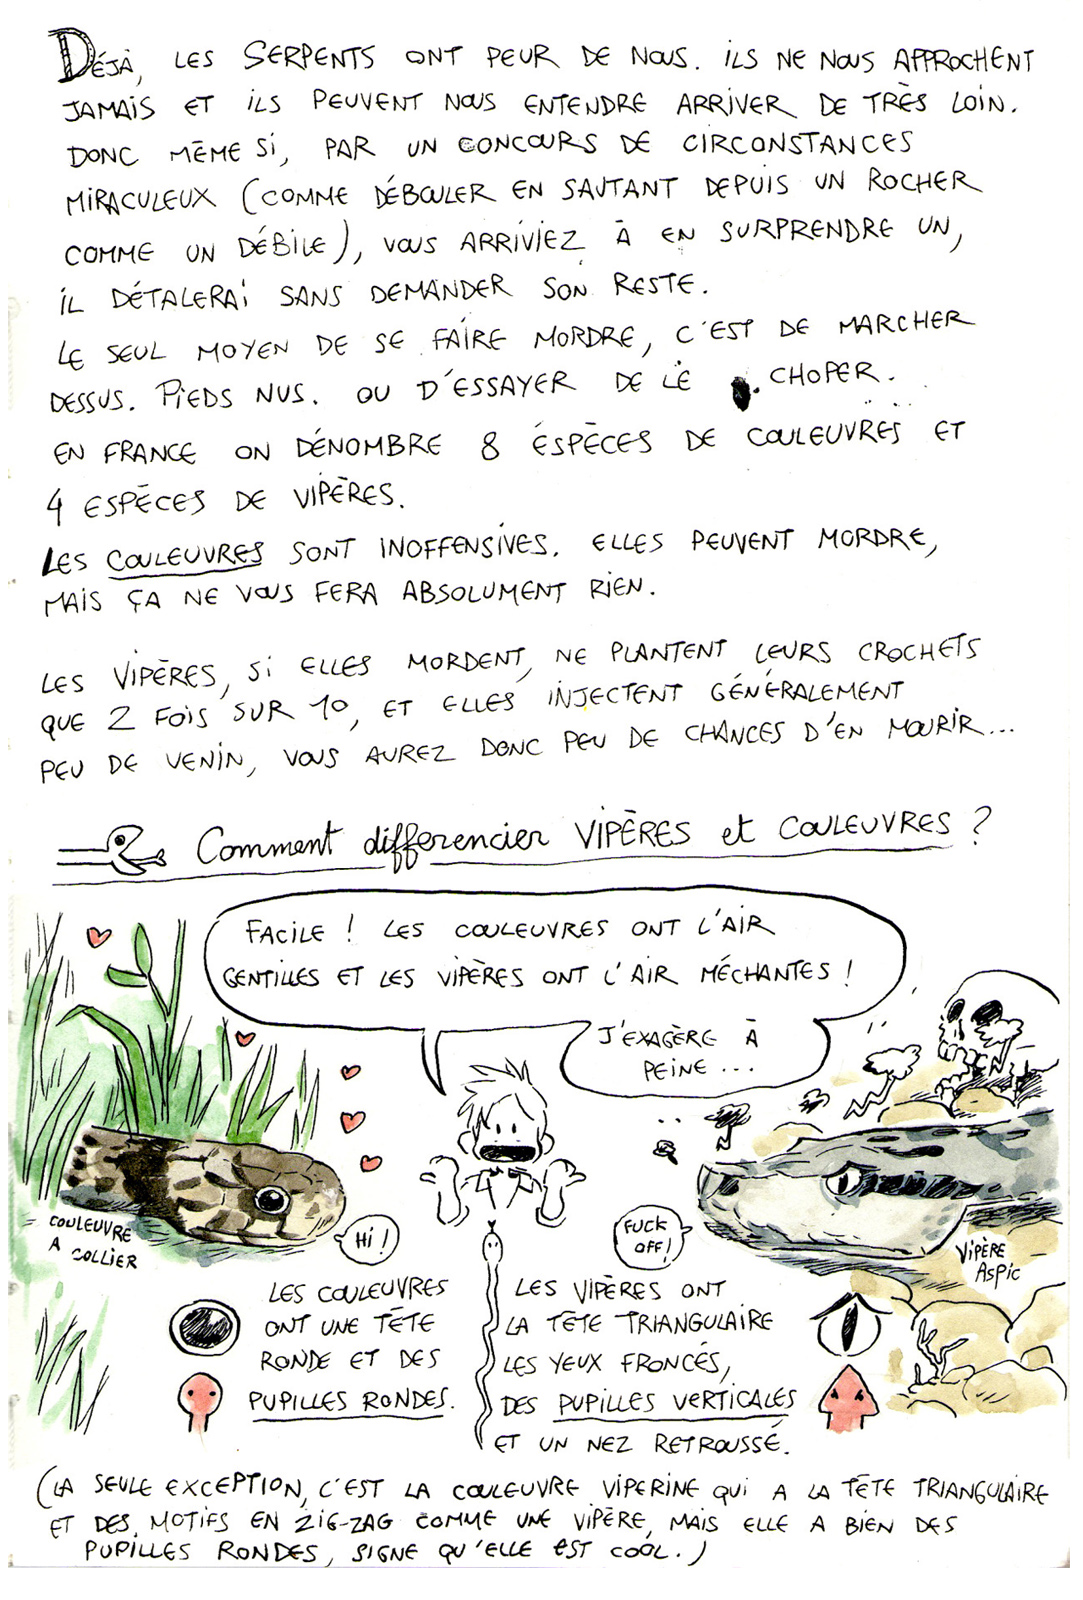 DÉJÀ, LES SERPENTS ONT PEUR DE NOUS. ILS NE NOUS APPROCHENT
JAMAIS ET ILS PEUVENT NOUS ENTENDRE ARRIVER DE TRÈS LOIN.
DONC MÊME SI, PAR UN CONCOURS DE CIRCONSTANCES
MIRACULEUX (COMME DÉBOULER EN SAUTANT DEPUIS UN ROCHER
COMME UN DÉBILE), VOUS ARRIVIEZ À EN SURPRENDRE UN,
IL DÉTALERAI SANS DEMANDER SON RESTE.
LE SEUL MOYEN DE SE FAIRE MORDRE, C'EST DE MARCHER
DESSUS. PIEDS NUS. OU D'ESSAYER DE LE CHOPER.
EN FRANCE ON DÉNOMBRE 8 ÉSPÈCES DE COULEUVRES ET
4 ESPÈCES DE VIPÈRES.
LES COULEUVRES SONT INOFFENSIVES. ELLES PEUVENT MORDRE,
MAIS ÇA NE VOUS FERA ABSOLUMENT RIEN.
LES VIPÈRES, SI ELLES MORDENT, NE PLANTENT LEURS CROCHETS
QUE 2 FOIS SUR 10, ET ELLES INJECTENT GÉNÉRALEMENT
PEU DE VENIN, VOUS AUREZ DONC PEU DE CHANCES D'EN MOURIR...
Comment differencier VIPÈRES et COULEUVRES ?
FACILE ! LES COULEUVRES ONT L'AIR
GENTILLES ET LES VIPÈRES ONT L'AIR MÉCHANTES !
J'EXAGÈRE À
PEINE ...
COULEUVRE
A COLLIER
Hi !
FUCK
OFF!
VIPÈRE
ASPIC
LES COULEUVRES
ONT UNE TÊTE
RONDE ET DES
PUPILLES RONDES.
LES VIPÈRES ONT
LA TÊTE TRIANGULAIRE
LES YEUX FRONCÉS,
DES PUPILLES VERTICALES
ET UN NEZ RETROUSSÉ.
(LA SEULE EXCEPTION, C'EST LA COULEUVRE VIPERINE QUI A LA TÊTE TRIANGULAIRE
ET DES MOTIFS EN ZIG-ZAG COMME UNE VIPÈRE, MAIS ELLE A BIEN DES
PUPILLES RONDES, SIGNE QU'ELLE EST COOL.)